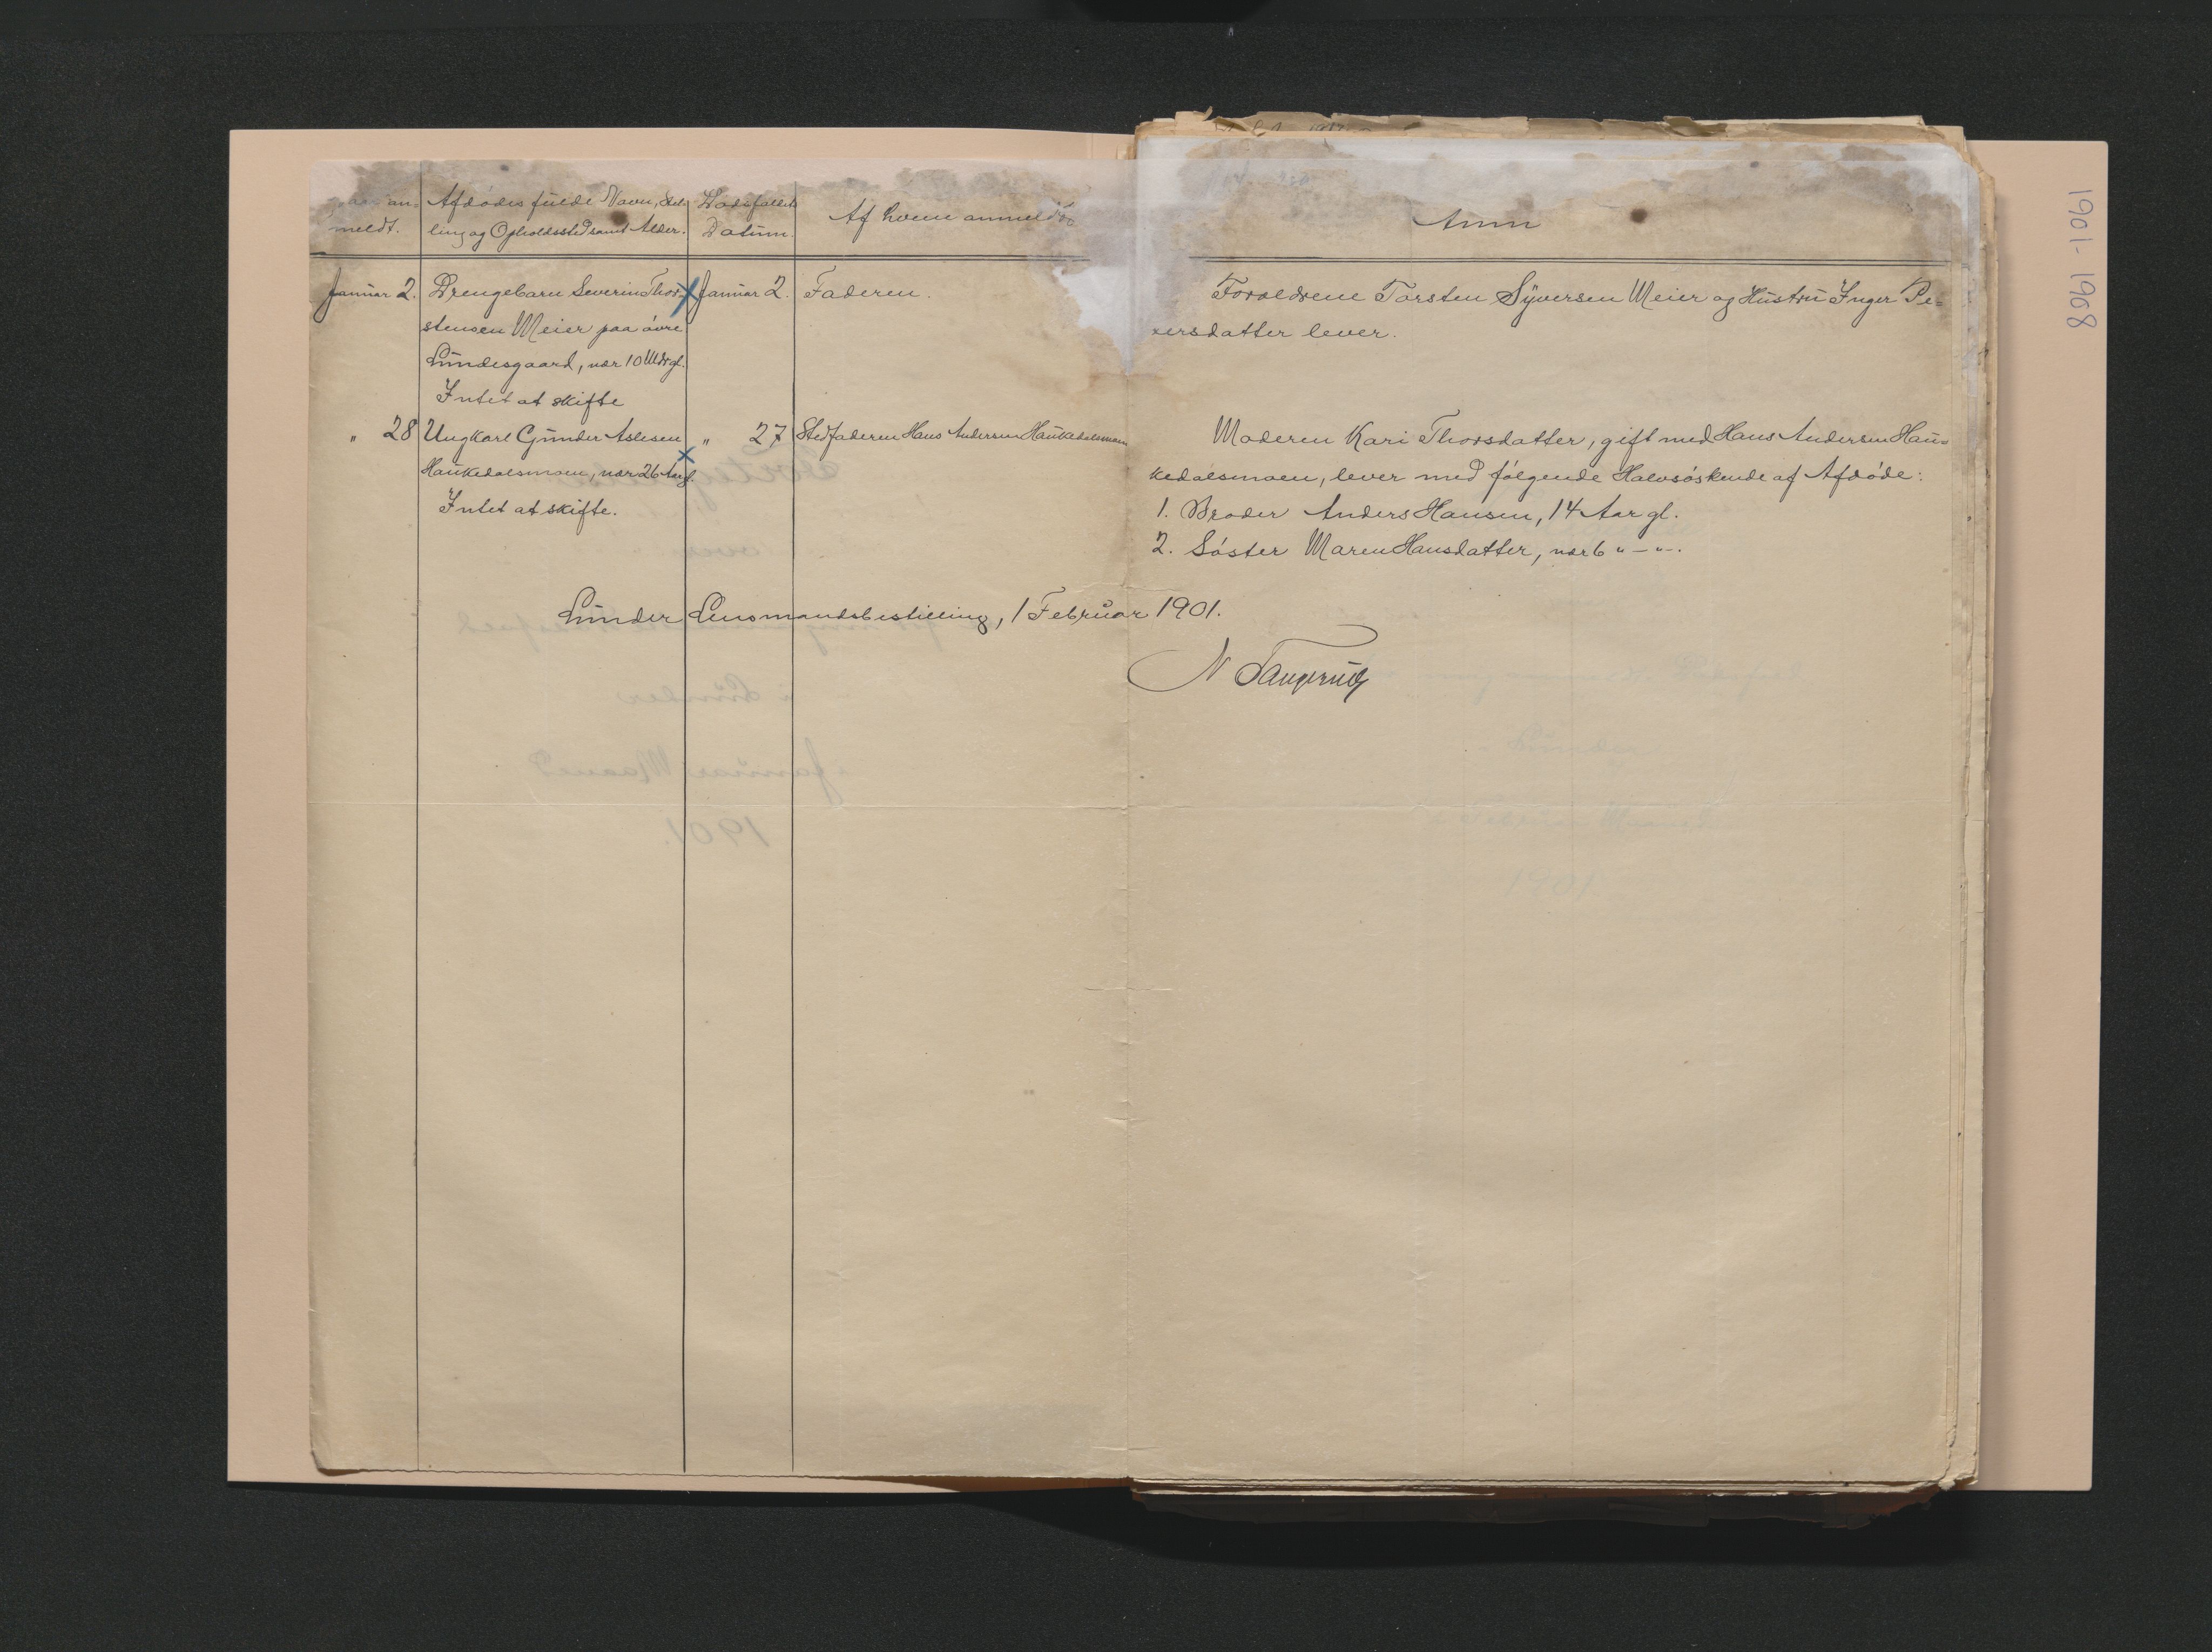 an=
meldt.
Afdödes fulde Navn, Stil=
ling og Opholdssted samt Alder.
Dödsfaldets
Datum.
Af hvem anmeldt
Anm
Januar 2.
Drengebarn Severin Thor=
stensen Meier paa övre
Lundesgaard, nær 10 Mdr gl.
Intet at skifte
Januar 2.
Faderen.
Forældrene Torsten Syversen Meier og Hustru Inger Pe=
ersdatter lever.
" 28
Ungkarl Gunder Aslesen
Haukedalsmoen, nær 26 Aar gl.
Intet at skifte.
" 27
Stedfaderen Hans Andersen Haukedalsmoen
Moderen Kari Thorsdatter, gift med Hans Andersen Hau=
kedalsmoen, lever med fölgende Halvsöskende af Afdöde:
1. Broder Anders Hansen, 14 Aar gl.
2. Söster Maren Hansdatter, nær 6 " - " -.
Lunder Lensmandsbestilling, 1 Februar 1901.
N Taugerud
1901-1908